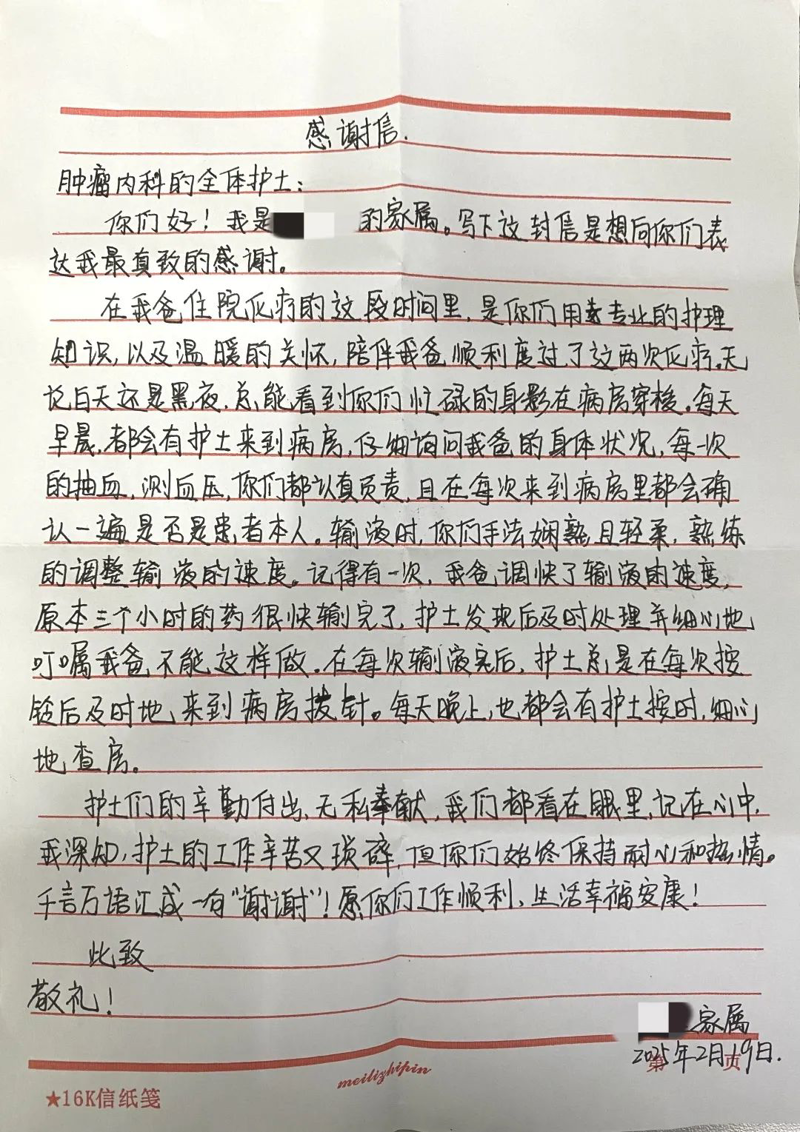 感谢信.
肿瘤内科的全体护士：
你们好！我是 的家属。写下这封信是想向你们表
达我最真致的感谢。
在我爸住院化疗的这段时间里，是你们用专业的护理
知识，以及温暖的关怀，陪伴我爸顺利度过了这两次化疗。无
论白天还是黑夜，总能看到你们忙碌的身影在病房穿梭。每天
早晨，都会有护士来到病房，仔细询问我爸的身体状况，每一次
的抽血，测血压，你们都认真负责，且在每次来到病房里都会确
认一遍是否是患者本人。输液时，你们手法娴熟且轻柔，熟练
的调整输液的速度。记得有一次，我爸调快了输液的速度，
原本三个小时的药很快输完了，护士发现后及时处理并细心地
叮嘱我爸不能这样做。在每次输液完后，护士总是在每次按
铃后及时地来到病房拔针。每天晚上，也都会有护士按时，细心
地查房。
护士们的辛勤付出，无私奉献，我们都看在眼里，记在心中，
我深知，护士的工作辛苦又琐碎，但你们始终保持耐心和热情。
千言万语汇成一句“谢谢”！愿你们工作顺利，生活幸福安康！
此致
敬礼！
家属
2025年2月19日.
第 页
meilizhipin
★16K信纸笺